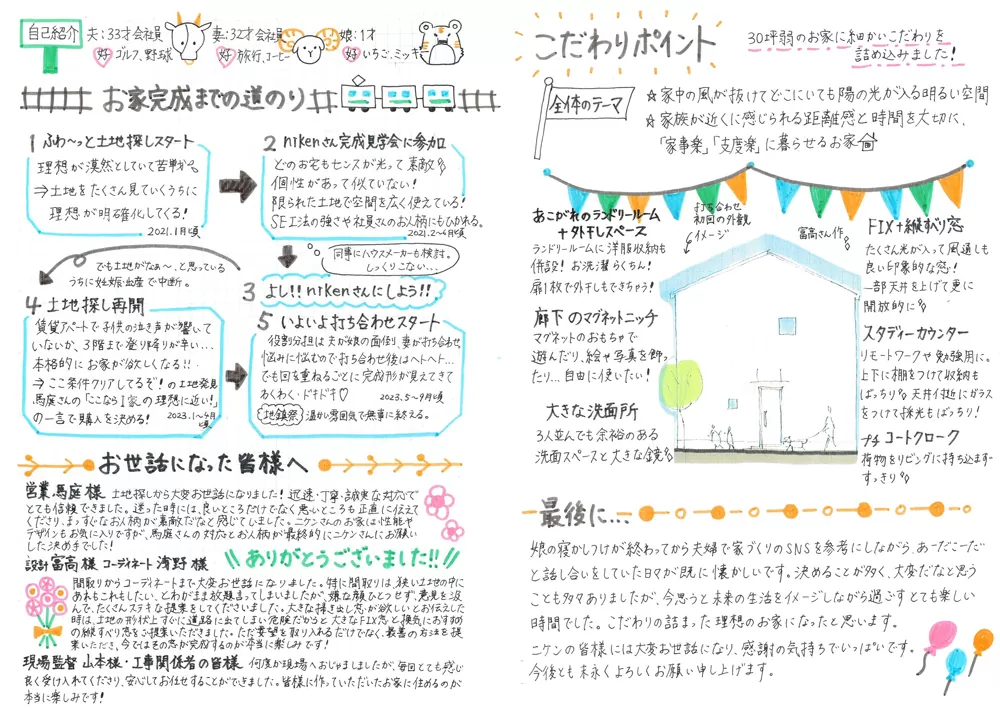 自己紹介
夫:33才会社員
好 ゴルフ、野球
妻:32才会社員
好 旅行、コーヒー
娘:1才
好 いちご、ミッキー
お家完成までの道のり
1 ふわ〜っと土地探しスタート
理想が漠然としていて苦戦
⇒土地をたくさん見ていくうちに
理想が明確化してくる!
2021.1月頃
2 nikenさん完成見学会に参加
どのお宅もセンスが光って素敵
個性があって似ていない!
限られた土地で空間を広く使えている!
SE工法の強さや社員さんのお人柄にもひかれる。
2021.2〜6月頃
同時にハウスメーカーも検討。
しっくりこない...
3 よし!!nikenさんにしよう!!
でも土地がなぁ〜、と思っている
うちに妊娠・出産で中断。
4 土地探し再開
賃貸アパートで子供の泣き声が響いて
いないか、3階まで登り降りが辛い...
本格的にお家が欲しくなる!!
⇒ここ条件クリアしてるぞ!の土地発見
馬庭さんの「ここならI家の理想に近い!」
の一言で購入を決める!
2023.1〜4月頃
5 いよいよ打ち合わせスタート
役割分担は夫が娘の面倒、妻が打ち合わせ
悩みに悩むので打ち合わせ後はヘトヘト...
でも回を重ねるごとに完成形が見えてきて
わくわく・ドキドキ♡
2023.5〜9月頃
地鎮祭 温かい雰囲気で無事に終える。
お世話になった皆様へ
営業 馬庭様 土地探しから大変お世話になりました!迅速・丁寧・誠実な対応で
とても信頼できました。迷った時には、良いところだけでなく悪いところも正直に伝えて
くださり、まっすぐなお人柄が素敵だなと感じてしました。ニケンさんのお家は性能や
デザインもお気に入りですが、馬庭さんの対応とお人柄が最終的にニケンさんにお願い
した決め手でした!
ありがとうございました!!
設計 富高様 コーディネート 浅野様
間取りからコーディネートまで大変お世話になりました。特に間取りは、狭い土地の中に
あれもこれもしたい、とわがまま放題言ってしまいましたが、嫌な顔ひとつせず、意見を汲
んで、たくさんステキな提案をしてくださいました。大きな掃き出し窓が欲しいとお伝えした
時は、土地の形状上すぐに道路に出てしまい危険だからと大きなFIX窓と換気におすすめ
の縦すべり窓をご提案いただきました。ただ要望を取り入れるだけでなく、最善の方法を提
案いただき、今ではその窓が完成するのが本当に楽しみです!
現場監督 山本様・工事関係者の皆様 何度か現場へおじゃましましたが、毎回とても感じ
良く受け入れてくださり、安心してお任せすることができました。皆様に作っていただいたお家に住めるのが
本当に楽しみです!
こだわりポイント
30坪弱のお家に細かいこだわりを
詰め込みました!
全体のテーマ
☆家中の風が抜けてどこにいても陽の光が入る明るい空間
☆家族が近くに感じられる距離感と時間を大切に、
「家事楽」「支度楽」に暮らせるお家
あこがれのランドリールーム
+外干しスペース
ランドリールームに洋服収納も
併設!お洗濯らくちん!
扉1枚で外干しもできちゃう!
打ち合わせ
初回の外観
イメージ
富高さん作
廊下のマグネットニッチ
マグネットのおもちゃで
遊んだり、絵や写真を飾っ
たり...自由に使いたい!
大きな洗面所
3人並んでも余裕のある
洗面スペースと大きな鏡
FIX+縦すべり窓
たくさん光が入って風通しも
良い印象的な窓!
一部天井を上げて更に
開放的に
スタディーカウンター
リモートワークや勉強用に。
上下に棚をつけて収納も
ばっちり 天井付近にガラス
をつけて採光もばっちり!
プチコートクローク
荷物をリビングに持ち込まず
すっきり
最後に...
娘の寝かしつけが終わってから夫婦で家づくりのSNSを参考にしながら、あーだこーだ
と話し合いをしていた日々が既に懐かしいです。決めることが多く、大変だなと思う
ことも多々ありましたが、今思うと未来の生活をイメージしながら過ごすとても楽しい
時間でした。こだわりの詰まった理想のお家になったと思います。
ニケンの皆様には大変お世話になり、感謝の気持ちでいっぱいです。
今後とも末永くよろしくお願い申し上げます。